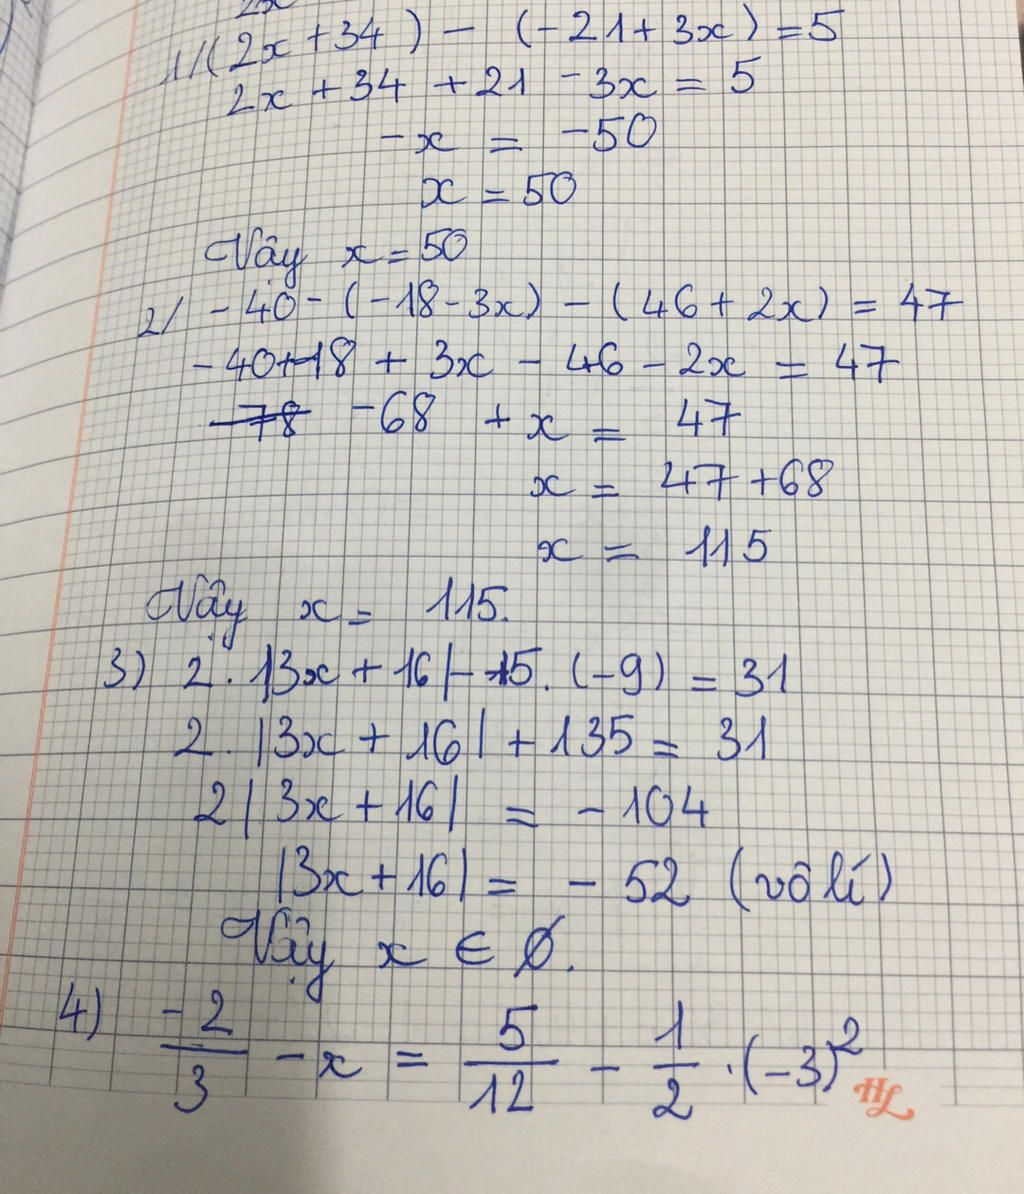 1/ (2x + 34) - (-21 + 3x) = 5
2x + 34 + 21 - 3x = 5
-x = -50
x = 50
Vậy x = 50
2/ -40 - (-18 - 3x) - (46 + 2x) = 47
-40 + 18 + 3x - 46 - 2x = 47
-68 + x = 47
x = 47 + 68
x = 115
Vậy x = 115.
3) 2 . |3x + 16| - 15 . (-9) = 31
2 . |3x + 16| + 135 = 31
2 |3x + 16| = -104
|3x + 16| = -52 (vô lí)
Vậy x ∈ Ø.
4) -2/3 - x = 5/12 - 1/2 . (-3)²
HL